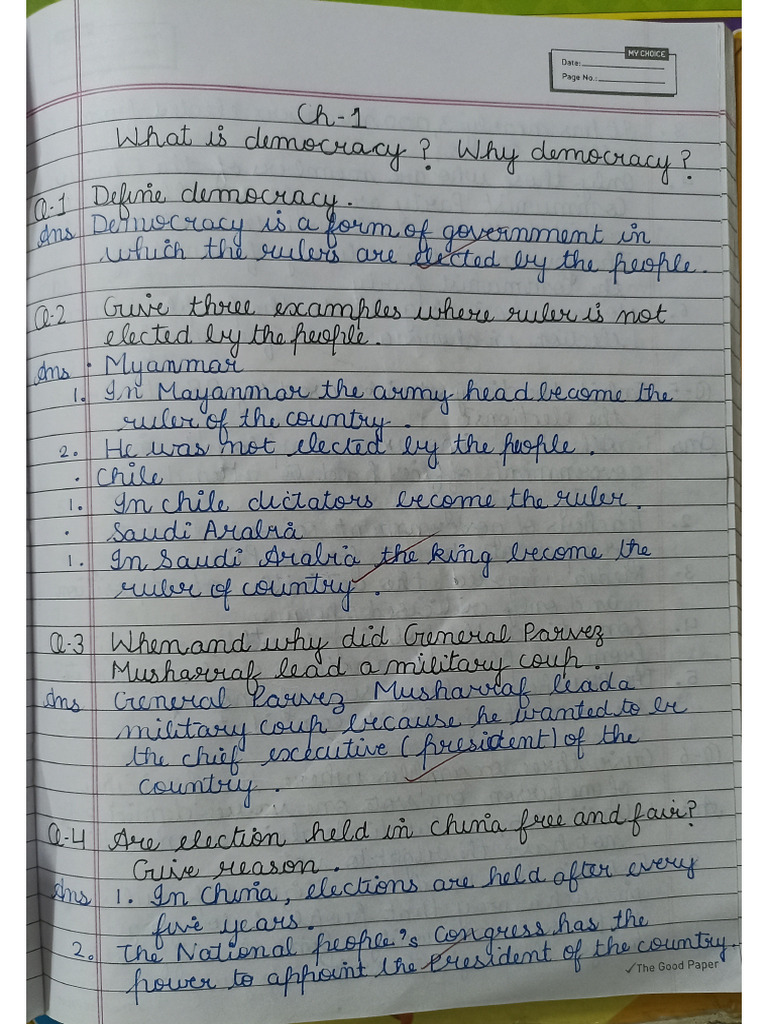 MY CHOICE
Date:
Page No.:
Ch-1
What is democracy? Why democracy?
Q-1 Define democracy.
Ans Democracy is a form of government in
which the rulers are elected by the people.
Q-2 Give three examples where ruler is not
elected by the people.
Ans • Myanmar
1. In Mayanmar the army head become the
ruler of the country.
2. He was not elected by the people.
• Chile
1. In chile dictators become the ruler.
• Saudi Arabia
1. In Saudi Arabia the king become the
ruler of country.
Q-3 When and why did General Parvez
Musharraf lead a military coup.
Ans General Parvez Musharraf lead a
military coup because he wanted to be
the chief executive (president) of the
country.
Q-4 Are election held in china free and fair?
Give reason.
Ans 1. In China, elections are held after every
five years.
2. The National people's Congress has the
power to appoint the President of the country.
The Good Paper